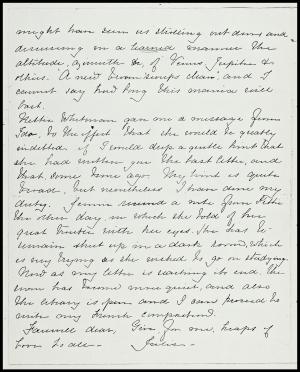 might have seen us strolling out doors and
discussing in a learned manner the
altitude, azimuth &c, of Venus, Jupiter &
others. A new broom sweeps clean, and I
cannot say how long this mania will
last.
Whitman gave me a message from
to the effect that she would be greatly
indebted if I would drop a gentle hint that
she had written you the last letter, and
that, some time ago. The hint is quite
broad, but nevertheless I have done my
duty. Jennie received a note from
the other day, in which she told of her
great trouble with her eyes. She has to
remain shut up in a dark room, which
is very trying as she wished to go on studying.
Now as my letter is reaching its end, the
room has become more quiet, and also
the library is open and I can proceed to
write my French composition.
Farewell dear, Give for me, heaps of
love to all —